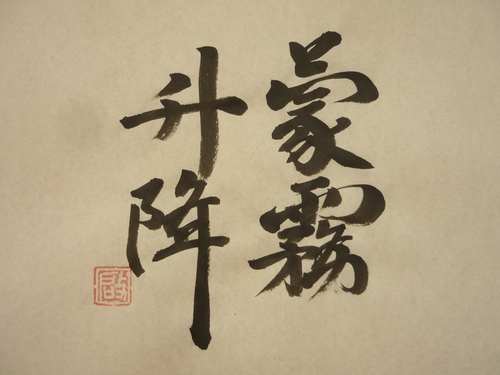 蒙霧
升降